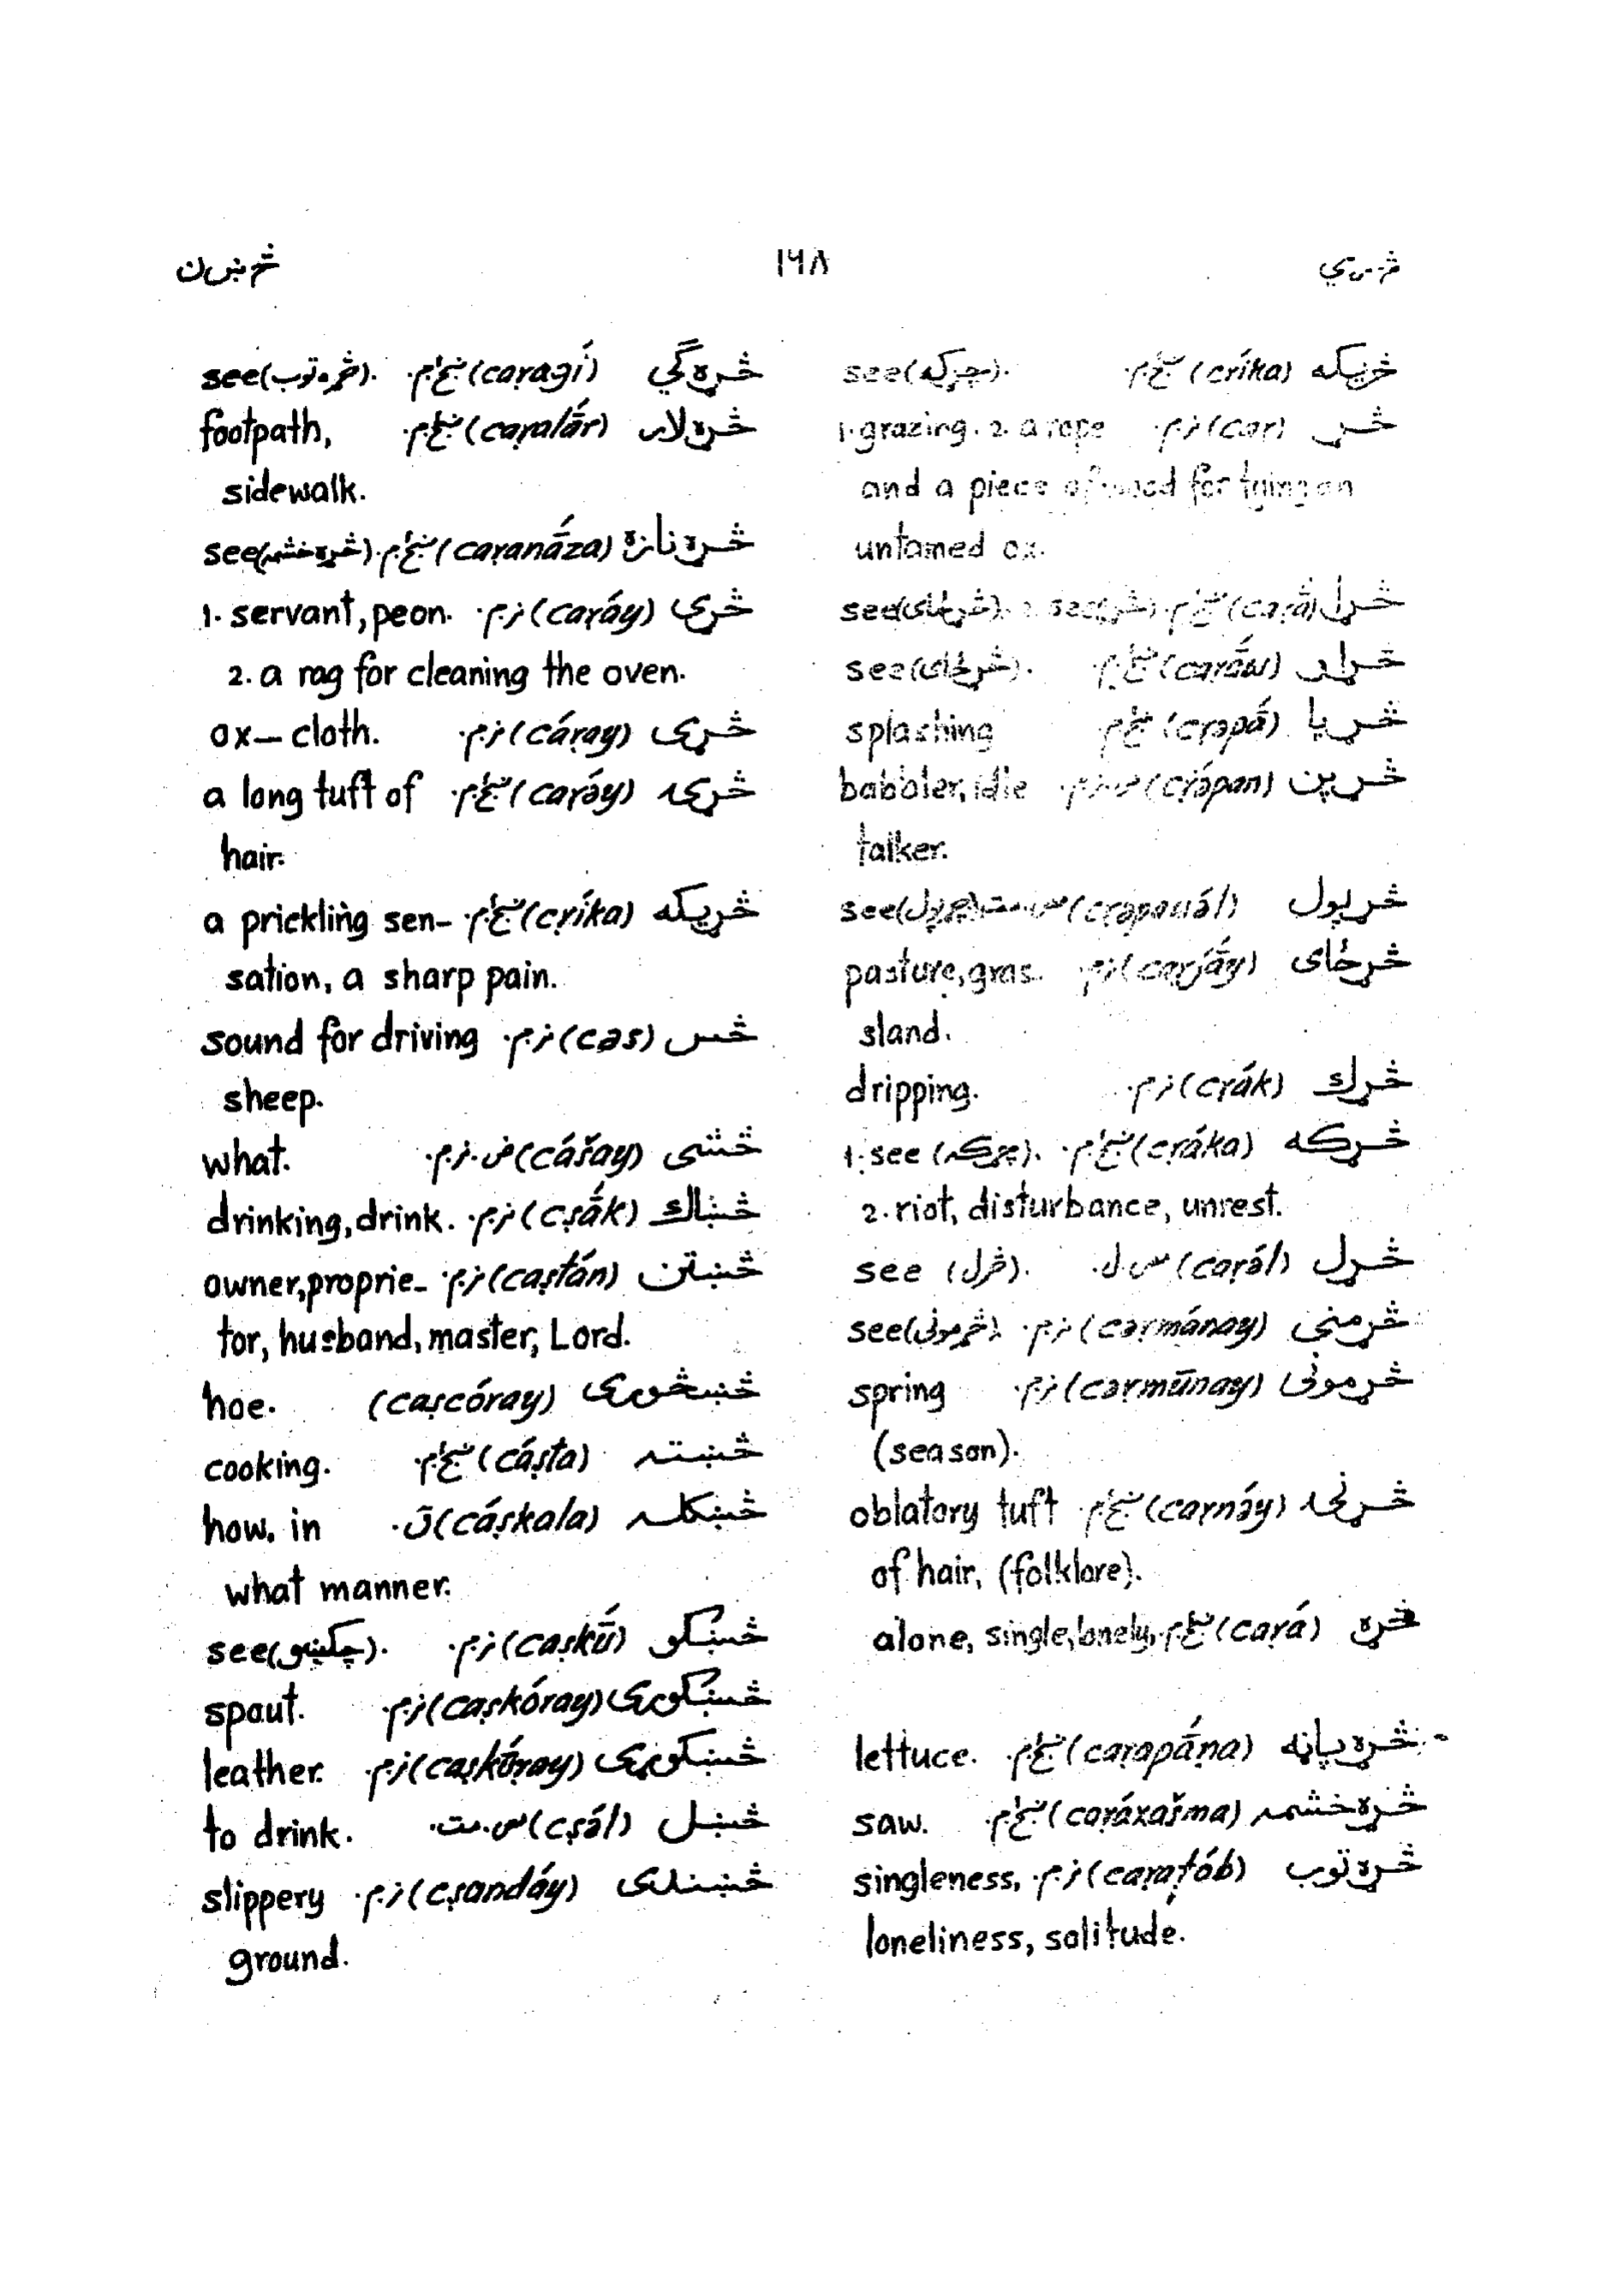 څ-ر-ي ۱۶۸ څ ښ ن
څريکه (críka) ښځ.م. see(چرکه).
څړ (car) نر.م. 1.grazing. 2. a rope
and a piece of wood for tying an
untamed ox.
څړا (caṛā́) ښځ.م. see(څړځای). 2. see(څړ).
څړاو (caṛā́w) ښځ.م. see(څړځای).
څړپا (cṛəpā́) ښځ.م. splashing
څړپن (cṛə́pan) ص.نر.م. babbler, idle
talker.
څړپول (cṛəpawə́l) س.مت. see(چړپول)
څړځای (carjā́y) نر.م. pasture, gras.
sland.
څړک (cṛák) نر.م. dripping.
څړکه (cṛáka) ښځ.م. 1. see (چړکه).
2. riot, disturbance, unrest.
څړل (caṛə́l) س.ل. see (څرل).
څړمنی (cəṛmánay) نر.م. see(څړمونی).
څړمونی (cəṛmū́nay) نر.م. spring
(season).
څړنۍ (caṛnə́y) ښځ.م. oblatory tuft
of hair, (folklore).
څړه (caṛá) ښځ.م. alone, single, lonely,
څړه پاڼه (caṛapā́ṇa) ښځ.م. lettuce.
څړه خشمه (caṛáxašma) ښځ.م. saw.
څړه توب (caṛatób) نر.م. singleness,
loneliness, solitude.
څړه ګي (caṛagí) ښځ.م. see(څړه توب).
څړه لار (caṛalā́r) ښځ.م. footpath,
sidewalk.
څړه نازه (caṛanā́za) ښځ.م. see(څړه خشمه).
څړی (caṛáy) نر.م. 1. servant, peon.
2. a rag for cleaning the oven.
څړی (cáṛay) نر.م. ox-cloth.
څړۍ (caṛə́y) ښځ.م. a long tuft of
hair.
څړيکه (cṛíka) ښځ.م. a prickling sen-
sation, a sharp pain.
څس (cəs) نر.م. sound for driving
sheep.
څشی (cášay) ض.نر.م. what.
څښاک (cṣā́k) نر.م. drinking, drink.
څښتن (caṣtán) نر.م. owner, proprie-
tor, husband, master, Lord.
څښڅوری (caṣcóray) hoe.
څښته (cáṣta) ښځ.م. cooking.
څښکله (cáṣkala) ق. how, in
what manner.
څښکو (caṣkū́) نر.م. see(چکښو).
څښکوری (caṣkóray) نر.م. spout.
څښکوړی (caṣkóṛay) نر.م. leather.
څښل (cṣə́l) س.مت. to drink.
څښندی (cṣandáy) نر.م. slippery
ground.